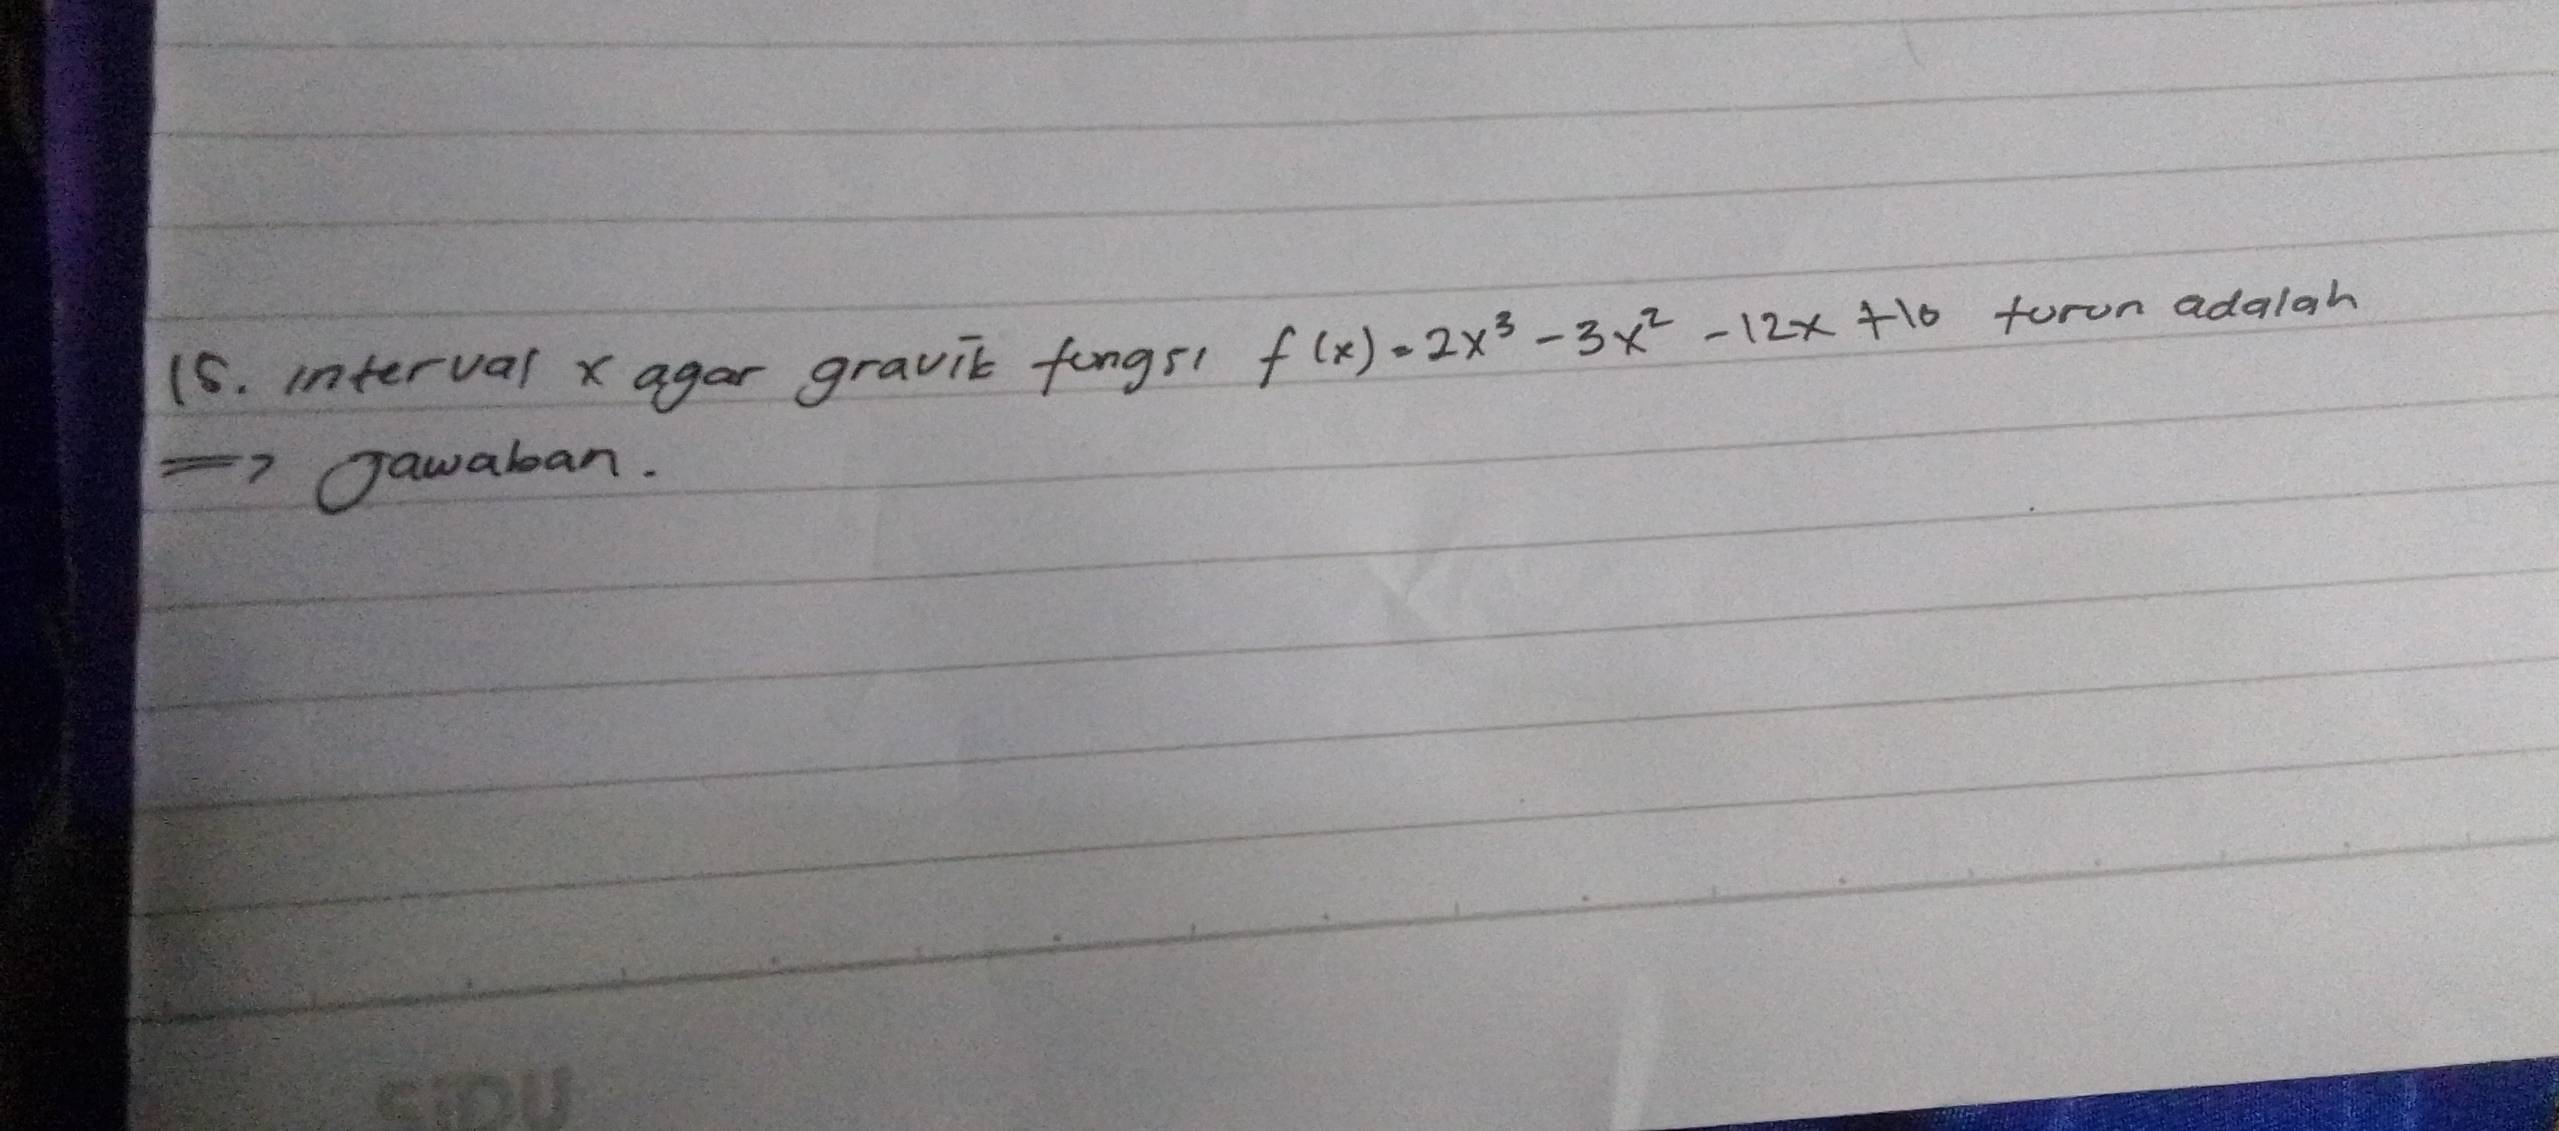 15. interval x agar gravik fungsi f(x) = 2x³ - 3x² - 12x + 10 turun adalah
=> Jawaban.
SiDU